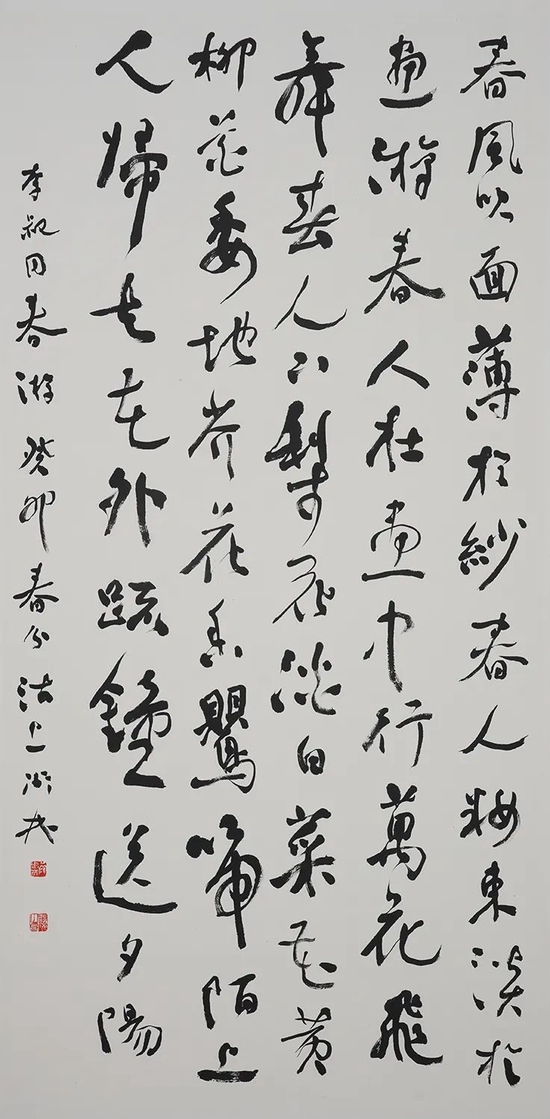 春風吹面薄於紗春人粧束淡於
畫游春人在畫中行萬花飛
舞春人下梨花淡白菜花黄
柳花委地芥花香鸎啼陌上
人歸去花外疏鐘送夕陽
李叔同春游癸卯春分沽上